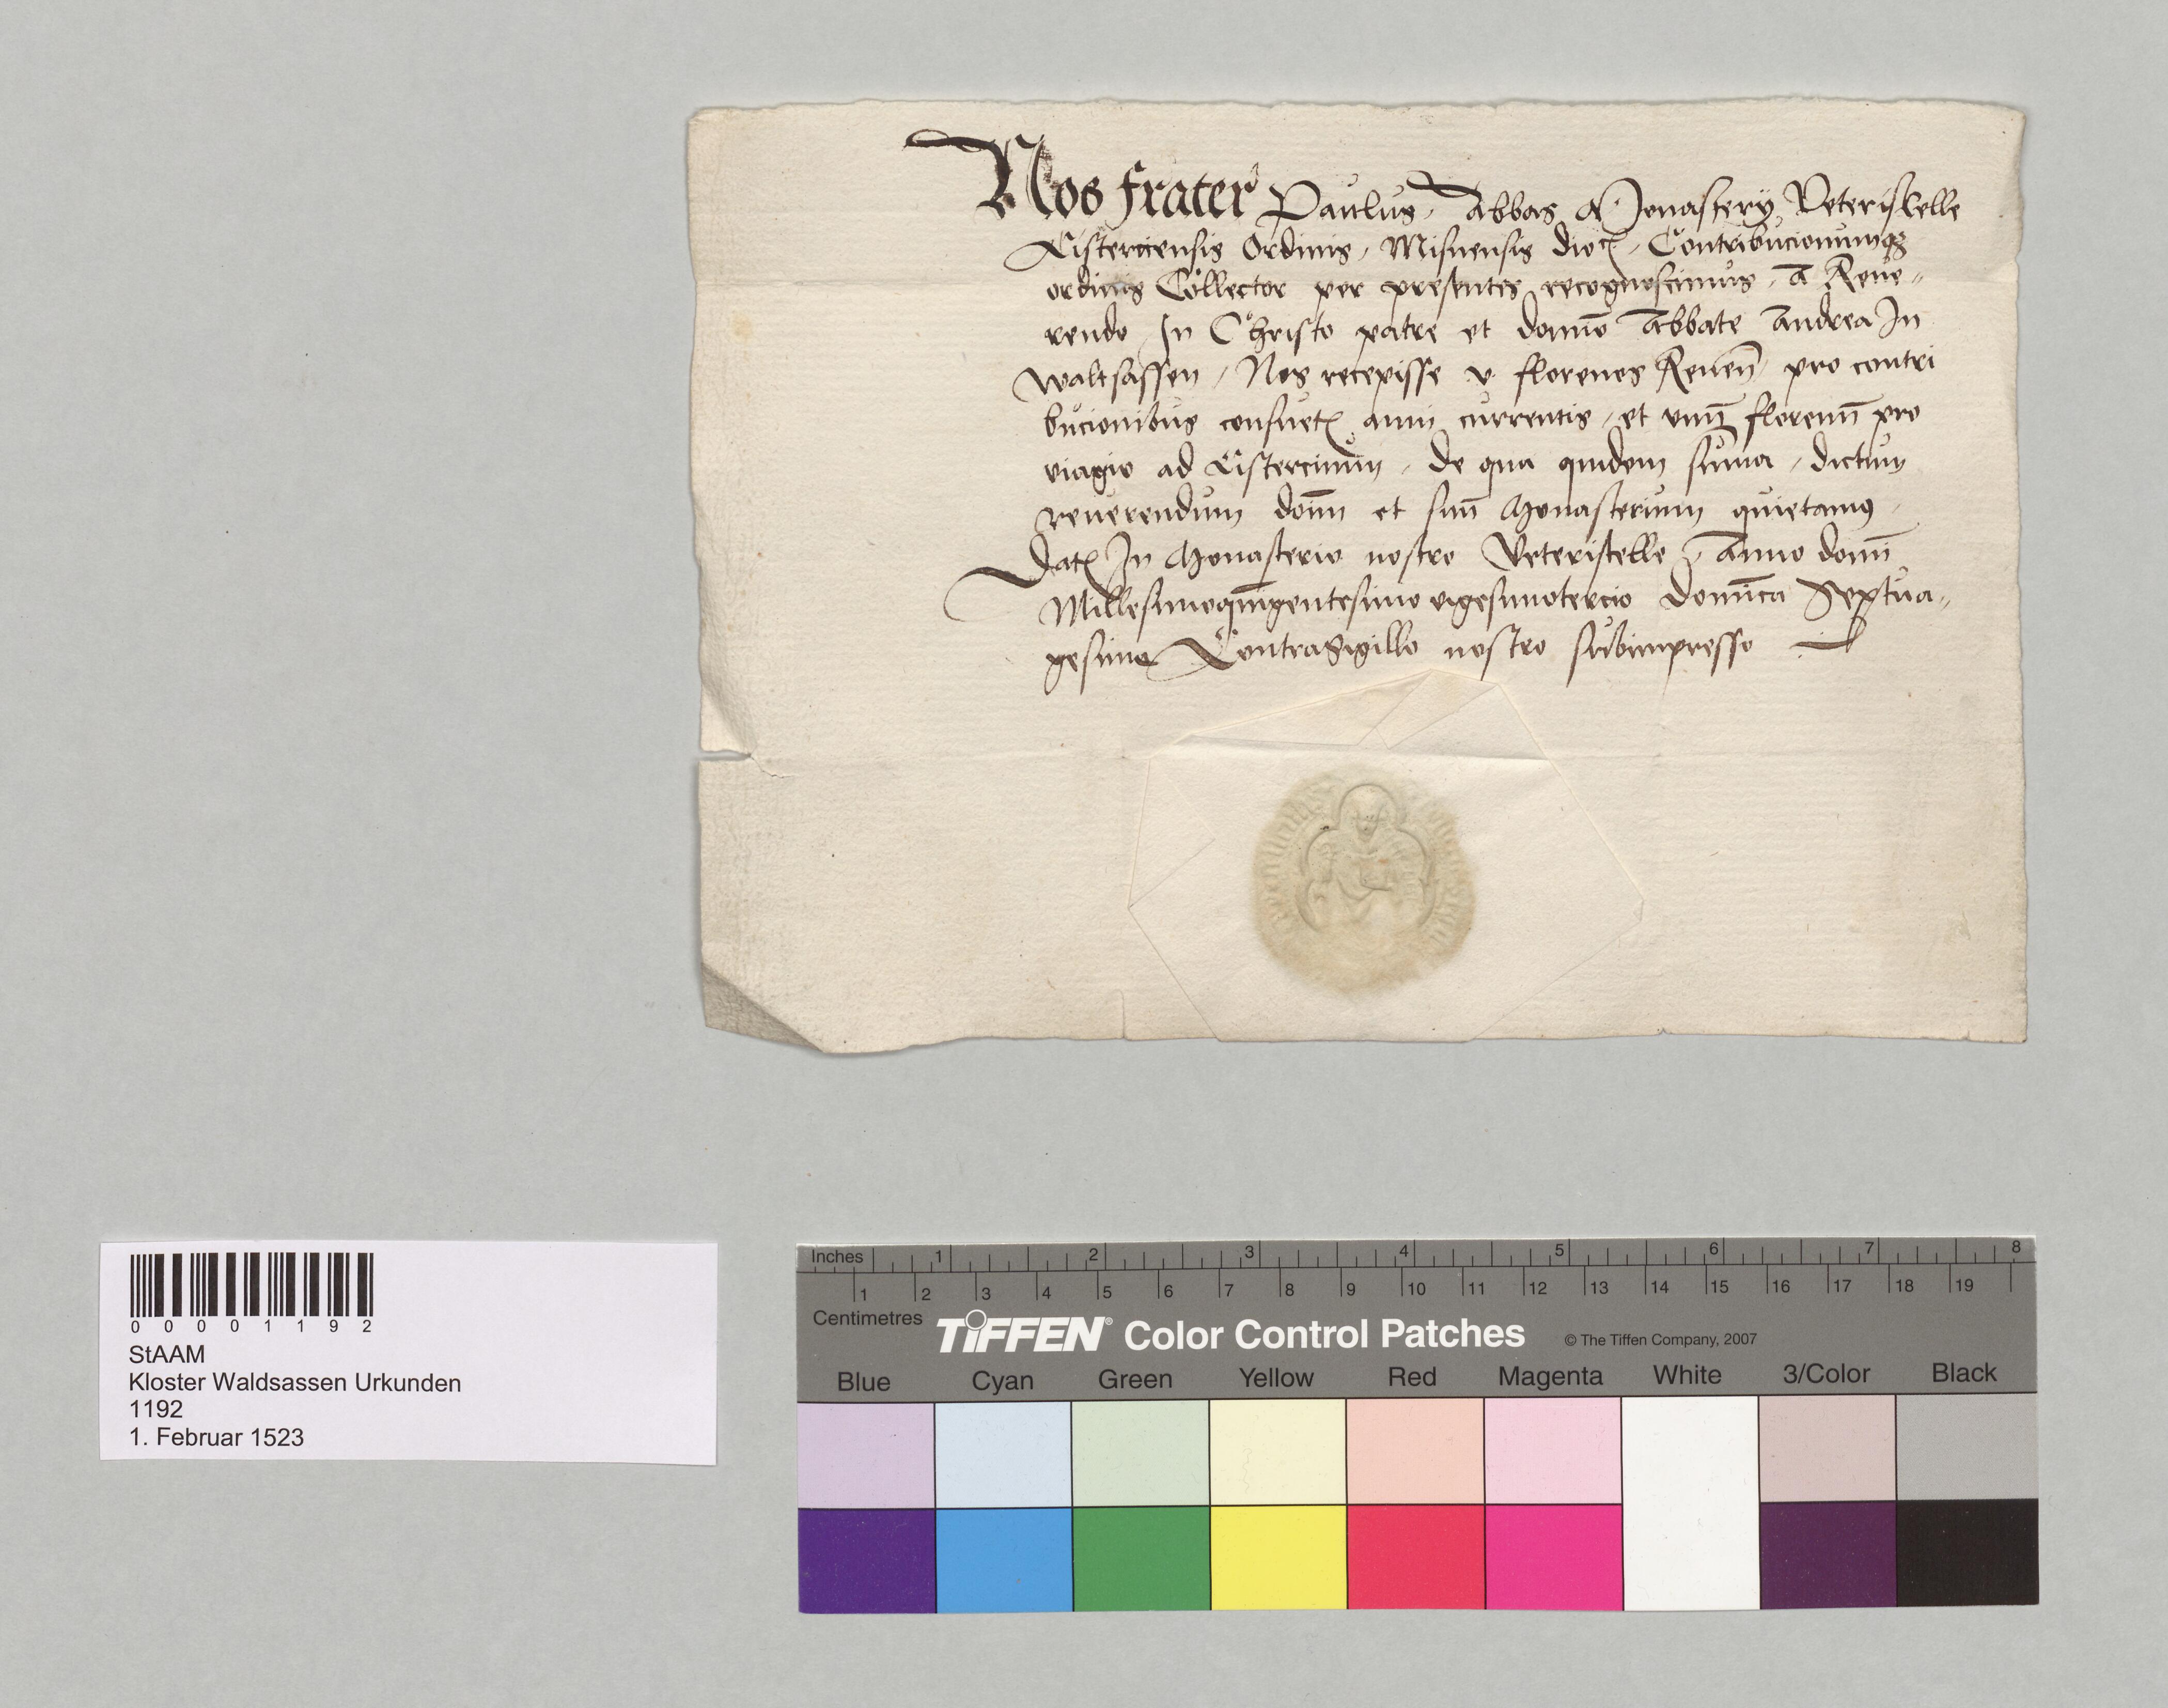 Nos frater Paulus, Abbas Monastery Veteriscelle
Cisterciensis Ordinis, Misnensis dioc, Contribucionumqz
ordinis Collector per presentes recognoscimus, a Reue-
rendo In Christo patre et domio Abbate Andrea In
Waltsassen, Nos recepisse v florenos Renen pro contri
bucionibus consuet anni currentis, et vnu florenu pro
viagio ad Cistercium, de qua quidem suma, dictum
reuerendum dominu et suu Monasterium quietamus
Dat In Monasterio nostro Veteriscelle, Anno domi
Millesimoquingentesimo vigesimotercio Dominica Septua-
gesima Contrasigillo nostro subimpresso
0 0 0 0 1 1 9 2
StAAM
Kloster Waldsassen Urkunden
1192
1. Februar 1523
Inches 1 2 3 4 5 6 7 8
1 2 3 4 5 6 7 8 9 10 11 12 13 14 15 16 17 18 19
Centimetres
TIFFEN® Color Control Patches © The Tiffen Company, 2007
Blue Cyan Green Yellow Red Magenta White 3/Color Black